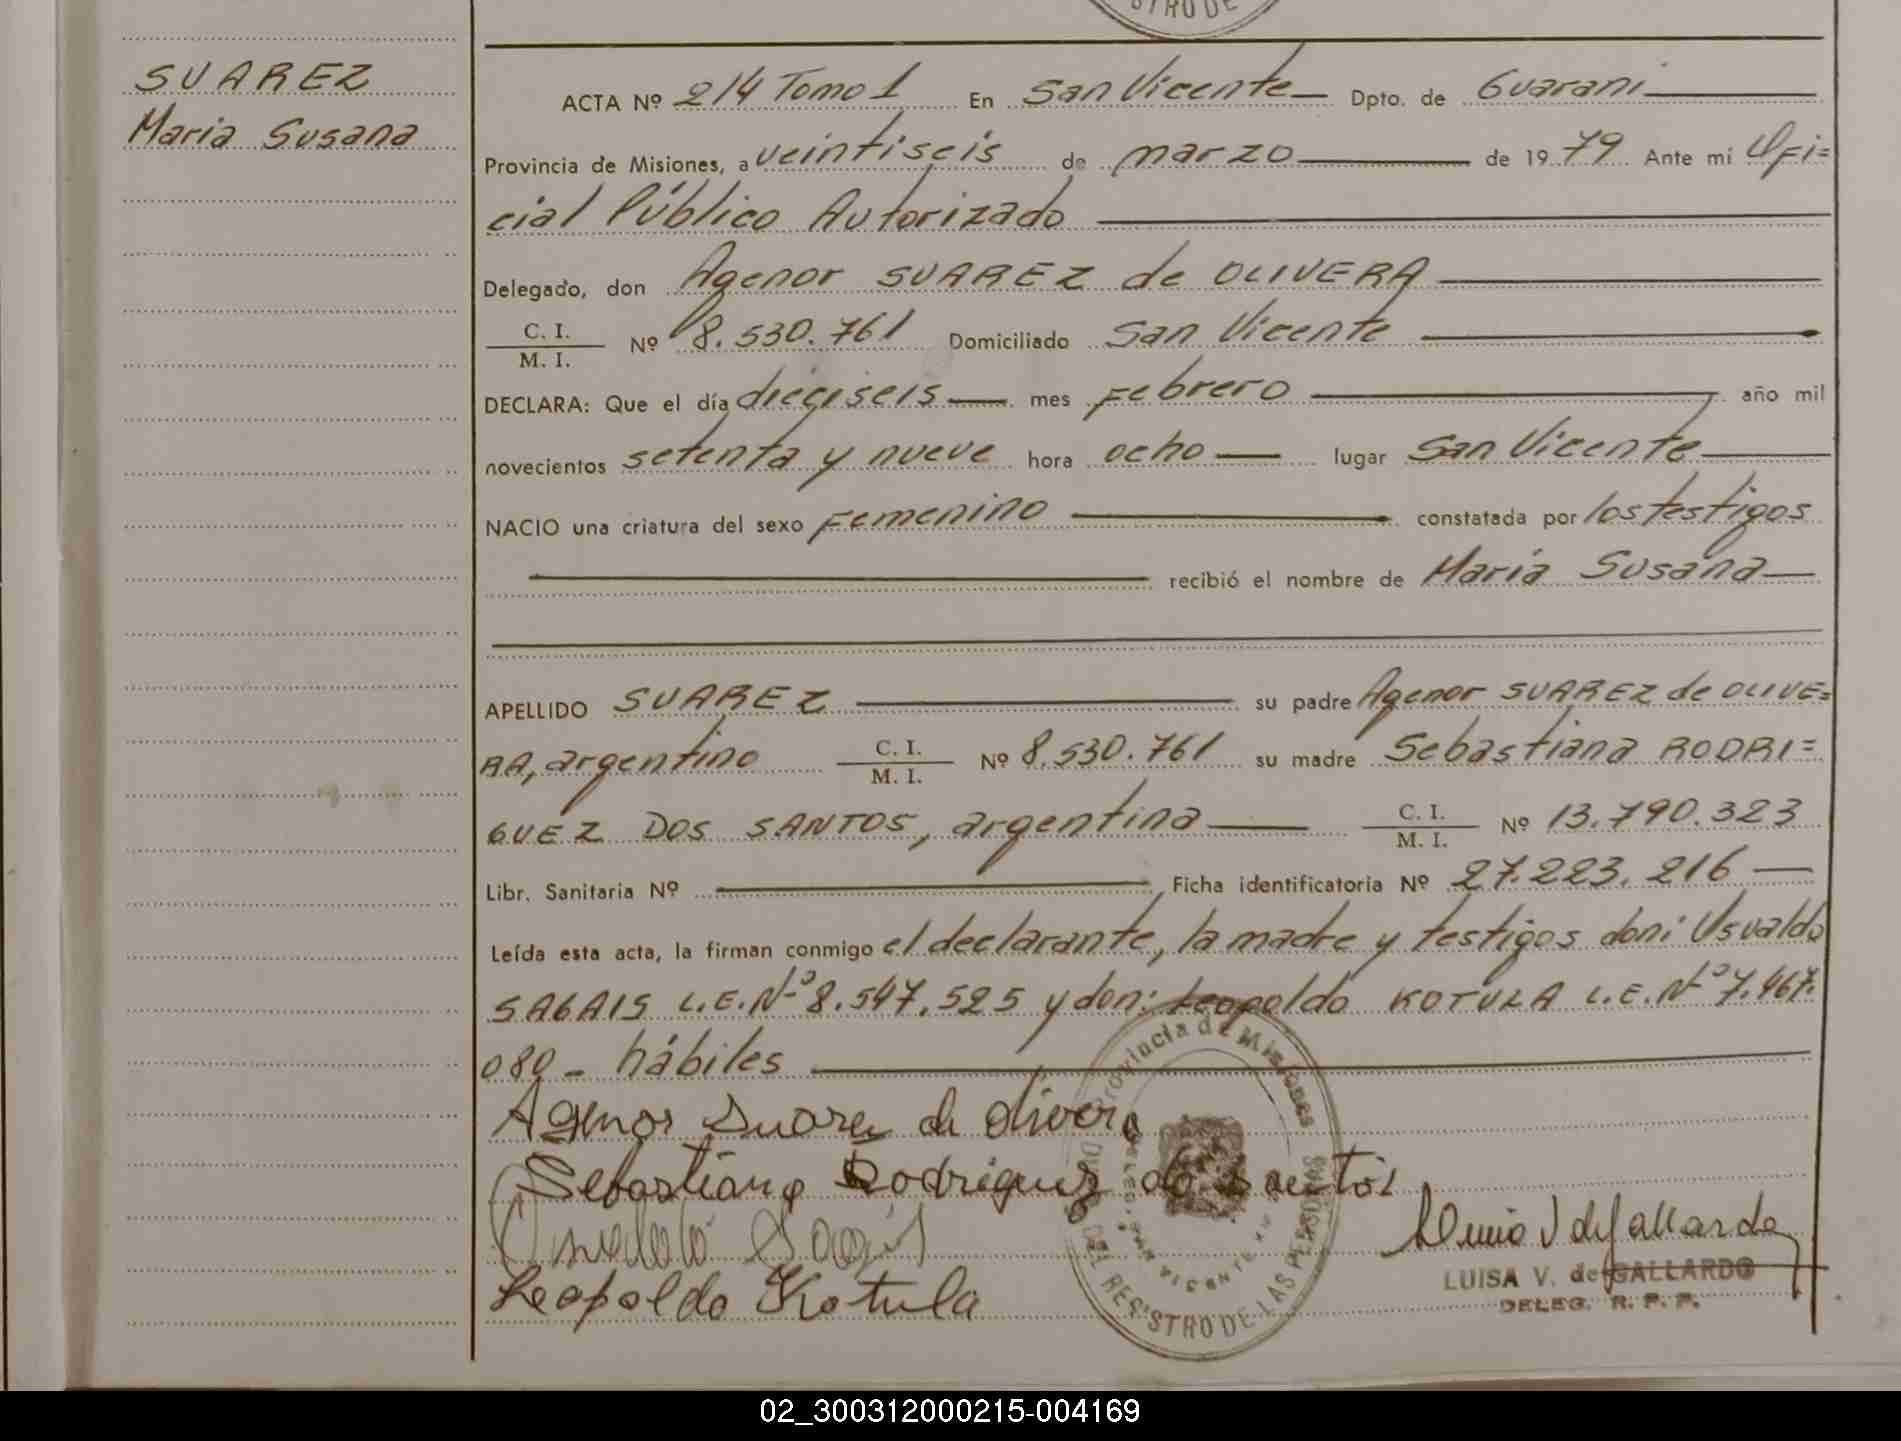 STRO DE
SUAREZ
Maria Susana
ACTA Nº 214 Tomo 1 En San Vicente Dpto. de Guarani
Provincia de Misiones, a veintiseis de marzo de 1979 Ante mí Ofi=
cial Público Autorizado
Delegado, don Agenor SUAREZ de OLIVERA
C. I.
M. I.
Nº 8.530.761 Domiciliado San Vicente
DECLARA: Que el día dieciseis mes Febrero año mil
novecientos setenta y nueve hora ocho lugar San Vicente
NACIO una criatura del sexo Femenino constatada por los testigos
recibió el nombre de Maria Susana
APELLIDO SUAREZ su padre Agenor SUAREZ de OLIVE=
RA, argentino C. I. M. I. Nº 8.530.761 su madre Sebastiana RODRI=
GUEZ DOS SANTOS, argentina C. I. M. I. Nº 13.790.323
Libr. Sanitaria Nº Ficha identificatoria Nº 27.223.216
Leída esta acta, la firman conmigo el declarante, la madre y testigos don: Usvaldo
SAGAIS L.E.Nº 8.547.525 y don: Leopoldo KOTULA L.E.Nº 7.467.
080 - hábiles
Agenor Suarez de Olivera
Sebastiana Rodriguez do Santos
Leopoldo Kotula
Provincia de Misiones
REGISTRO DE LAS PERSONAS
SAN VICENTE
LUISA V. de GALLARDO
DELEG. R. P. P.
02_300312000215-004169